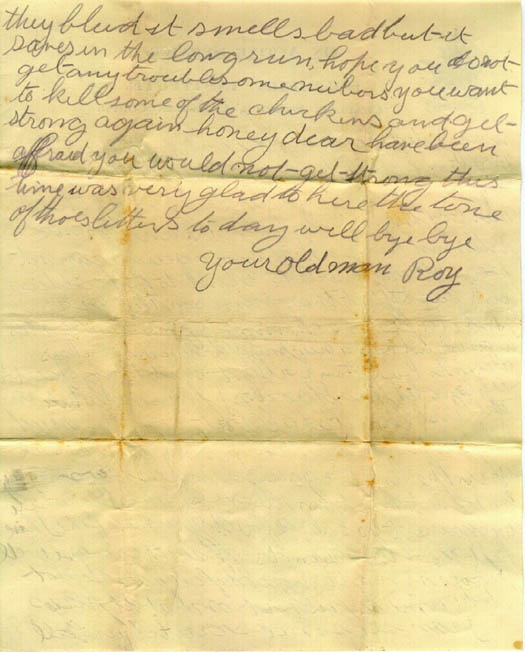 they blud it smells bad but it
saves in the long run, hope you do not
get any troublesome neibors you want
to kill some of the chickins and get
strong again honey dear have been
affraid you would not get strong this
time was very glad to here the tone
of thoes letters to day will bye bye
your old man Roy